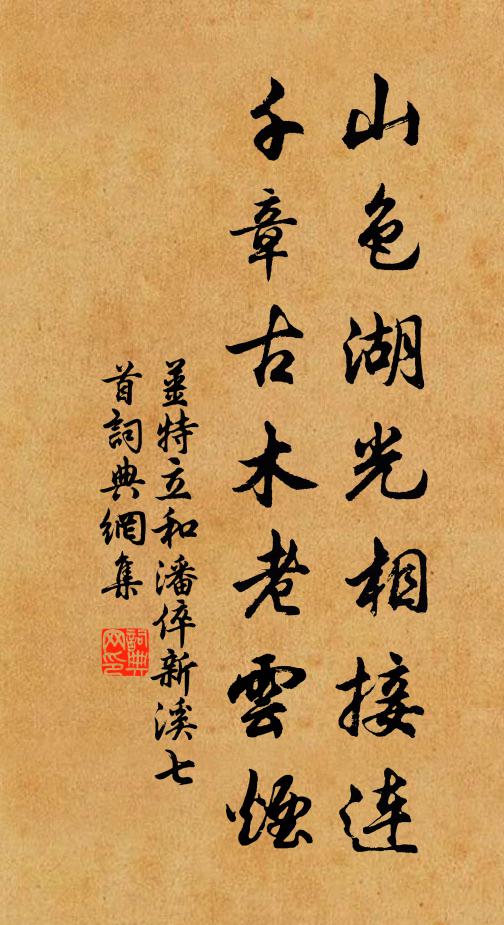 山色湖光相接連
千章古木老雲煙
姜特立和潘倅新溪七
首詞典網集
詞典网印